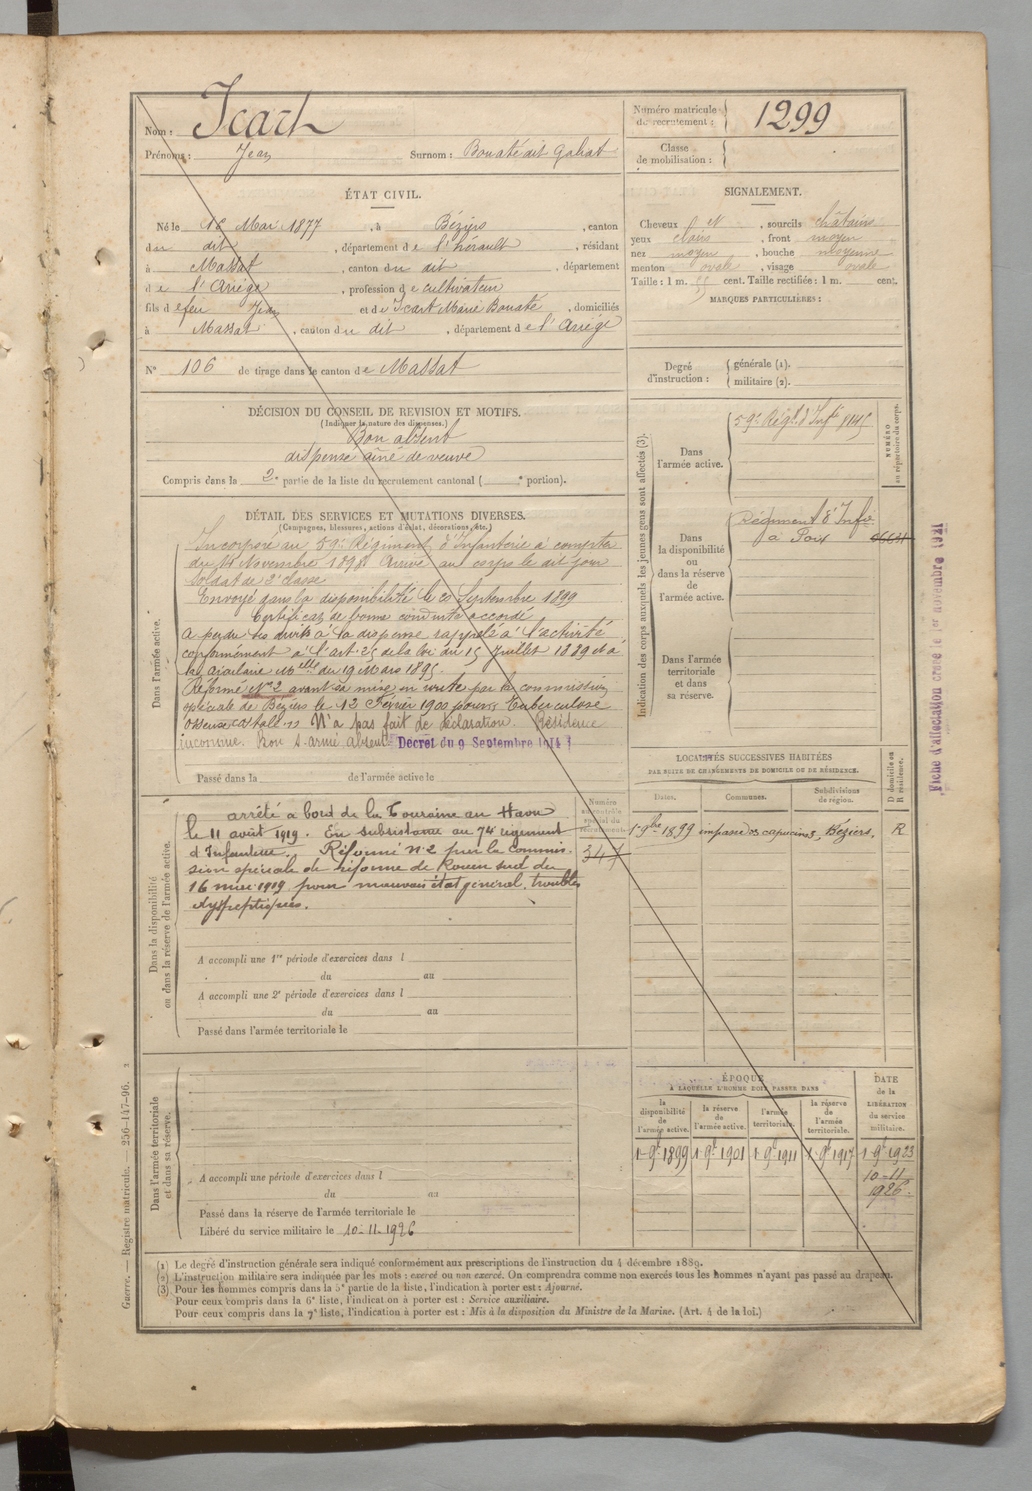 Nom : Icart
Prénoms : Jean Surnom : Bonaté dit Galiat
Numéro matricule de recrutement : 1299
Classe de mobilisation :
ÉTAT CIVIL.
Né le 16 Mai 1877, à Béziers, canton
du dit, département de l'hérault, résidant
à Massat, canton du dit, département
de l'Ariège, profession de cultivateur
fils de feu Jean et de Icart Marie Bonaté, domiciliés
à Massat, canton du dit, département de l'Ariège
N° 106 de tirage dans le canton de Massat
SIGNALEMENT.
Cheveux et, sourcils châtains
yeux clairs, front moyen
nez moyen, bouche moyenne
menton ovale, visage ovale
Taille : 1 m. 55 cent. Taille rectifiée : 1 m. cent.
MARQUES PARTICULIÈRES :
Degré d'instruction : générale (1).
militaire (2).
DÉCISION DU CONSEIL DE REVISION ET MOTIFS.
(Indiquer la nature des dispenses.)
Bon absent
dispensé aîné de veuve
Compris dans la 2e partie de la liste du recrutement cantonal ( e portion).
DÉTAIL DES SERVICES ET MUTATIONS DIVERSES.
(Campagnes, blessures, actions d'éclat, décorations, etc.)
Dans l'armée active.
Incorporé au 59e Régiment d'Infanterie à compter
du 14 Novembre 1898. Arrivé au corps le dit jour
soldat de 2e classe
Envoyé dans la disponibilité le 20 Septembre 1899
Certificat de bonne conduite accordé
A perdu ses droits à la dispense rappelé à l'activité
conformément à l'art. 25 de la loi du 15 Juillet 1889 et à
la circulaire Mlle du 19 Mars 1895.
Réformé No 2 avant sa mise en route par la commission
spéciale de Béziers le 12 Février 1900 pour Tuberculose
osseuse costale. N'a pas fait de déclaration. Résidence
inconnue. Non s. armé absent. Décret du 9 Septembre 1914
Passé dans la de l'armée active le
Dans la disponibilité ou dans la réserve de l'armée active.
arrêté à bord de la Touraine au Havre
le 11 août 1919. En subsistance au 74 régiment
d'Infanterie. Réformé n. 2 par la commis-
sion spéciale de réforme de Rouen sud du
16 1919 pour mauvais état général, troubles
dyspeptiques.
Numéro au contrôle spécial du recrutement.
347
A accompli une 1re période d'exercices dans l
du au
A accompli une 2e période d'exercices dans l
du au
Passé dans l'armée territoriale le
Dans l'armée territoriale et dans sa réserve.
A accompli une période d'exercices dans l
du au
Passé dans la réserve de l'armée territoriale le
Libéré du service militaire le 10-11-1926
Indication des corps auxquels les jeunes gens sont affectés (3).
NUMÉRO au répertoire du corps.
Dans l'armée active. 59e Régt d'Infie 8145
Dans la disponibilité ou dans la réserve de l'armée active.
Régiment d'Infie
à Foix
Dans l'armée territoriale et dans sa réserve.
LOCALITÉS SUCCESSIVES HABITÉES
PAR SUITE DE CHANGEMENTS DE DOMICILE OU DE RÉSIDENCE.
Dates. Communes. Subdivisions de région. D domicile ou R résidence.
1er 9bre 1899 impasse des capucines, Béziers, R
ÉPOQUE
À LAQUELLE L'HOMME DOIT PASSER DANS
la disponibilité de l'armée active. la réserve de l'armée active. l'armée territoriale. la réserve de l'armée territoriale. DATE de la LIBÉRATION du service militaire.
1er 9bre 1899 1er 9bre 1901 1er 9bre 1911 1er 9bre 1917 1er 9bre 1923
10-11-
1926.
(1) Le degré d'instruction générale sera indiqué conformément aux prescriptions de l'instruction du 4 décembre 1889.
(2) L'instruction militaire sera indiquée par les mots : exercé ou non exercé. On comprendra comme non exercés tous les hommes n'ayant pas passé au drapeau.
(3) Pour les hommes compris dans la 5e partie de la liste, l'indication à porter est : Ajourné.
Pour ceux compris dans la 6e liste, l'indication à porter est : Service auxiliaire.
Pour ceux compris dans la 7e liste, l'indication à porter est : Mis à la disposition du Ministre de la Marine. (Art. 4 de la loi.)
Guerre. — Registre matricule. — 256-147-96. 1
Fiche d'affectation créée le 1er novembre 1921